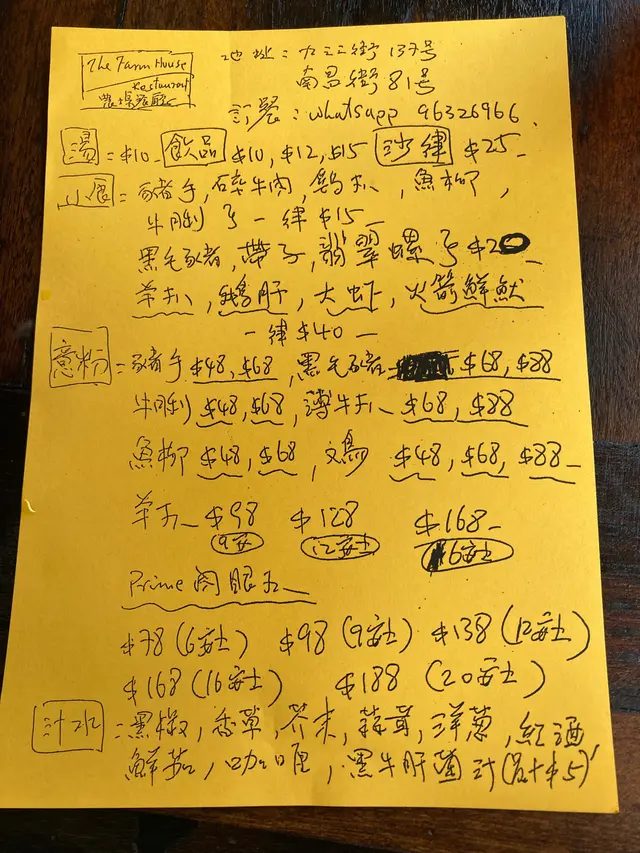 The Farm House
Restaurant
農場餐廳
地址：九江街 137号
南昌街 81号
訂餐：whatsapp 96326966.
湯 = $10- 飲品 $10, $12, $15 沙律 $25-
小食 = 豬手, 碎牛肉, 鷄扒, 魚柳,
牛脷 一律 $15-
黑毛豬, 帶子, 翡翠螺 $20-
羊扒, 鵝肝, 大虾, 火箭鮮魷
一律 $40-
意粉 = 豬手 $48, $68, 黑毛豬 $68, $88
牛脷 $48, $68, 薄牛扒 $68, $88
魚柳 $48, $68, 文鳥 $48, $68, $88-
羊扒 $98 $128 $168-
(9安) (12安士) (16安士)
Prime 肉眼扒
$78 (6安士) $98 (9安士) $138 (12安士)
$168 (16安士) $188 (20安士)
汁水 = 黑椒, 香草, 芥末, 蒜茸, 洋葱, 紅酒
鮮茄, 咖喱, 黑牛肝菌汁 (另+$5)